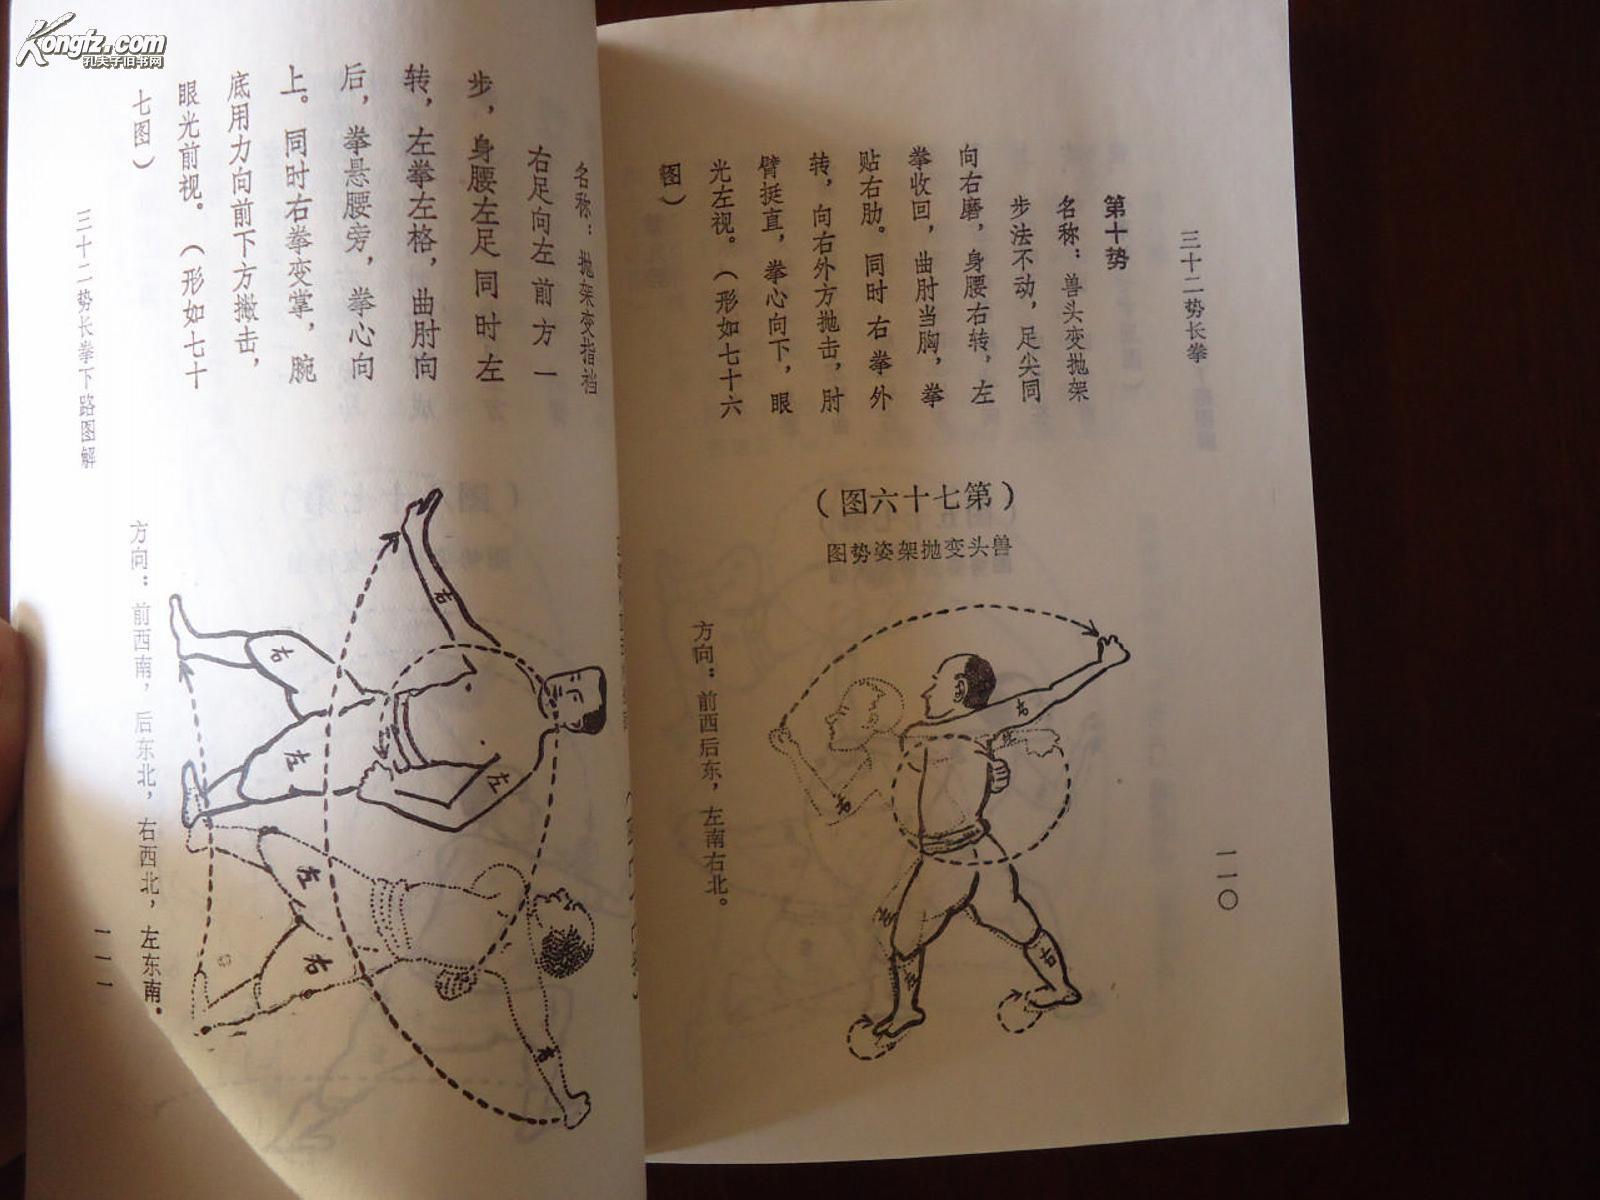 Kongfz.com
孔夫子旧书网
三十二势长拳
一一〇
第十势
名称：兽头变抛架
步法不动，足尖同
向右磨，身腰右转，左
拳收回，曲肘当胸，拳
贴右肋。同时右拳外
转，向右外方抛击，肘
臂挺直，拳心向下，眼
光左视。（形如七十六
图）
（第七十六图）
兽头变抛架姿势图
方向：前西后东，左南右北。
右
右
右
左
左
名称：抛架变指裆
右足向左前方一
步，身腰左足同时左
转，左拳左格，曲肘向
后，拳悬腰旁，拳心向
上。同时右拳变掌，腕
底用力向前下方撇击，
眼光前视。（形如七十
七图）
三十二势长拳下路图解
一一一
方向：前西南，后东北，右西北，左东南。
右
右
左
左
左
右
右